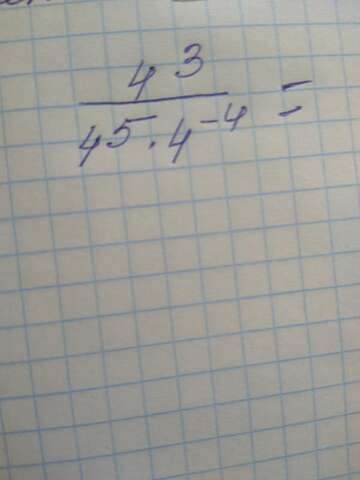 4³
4⁵ · 4⁻⁴ =